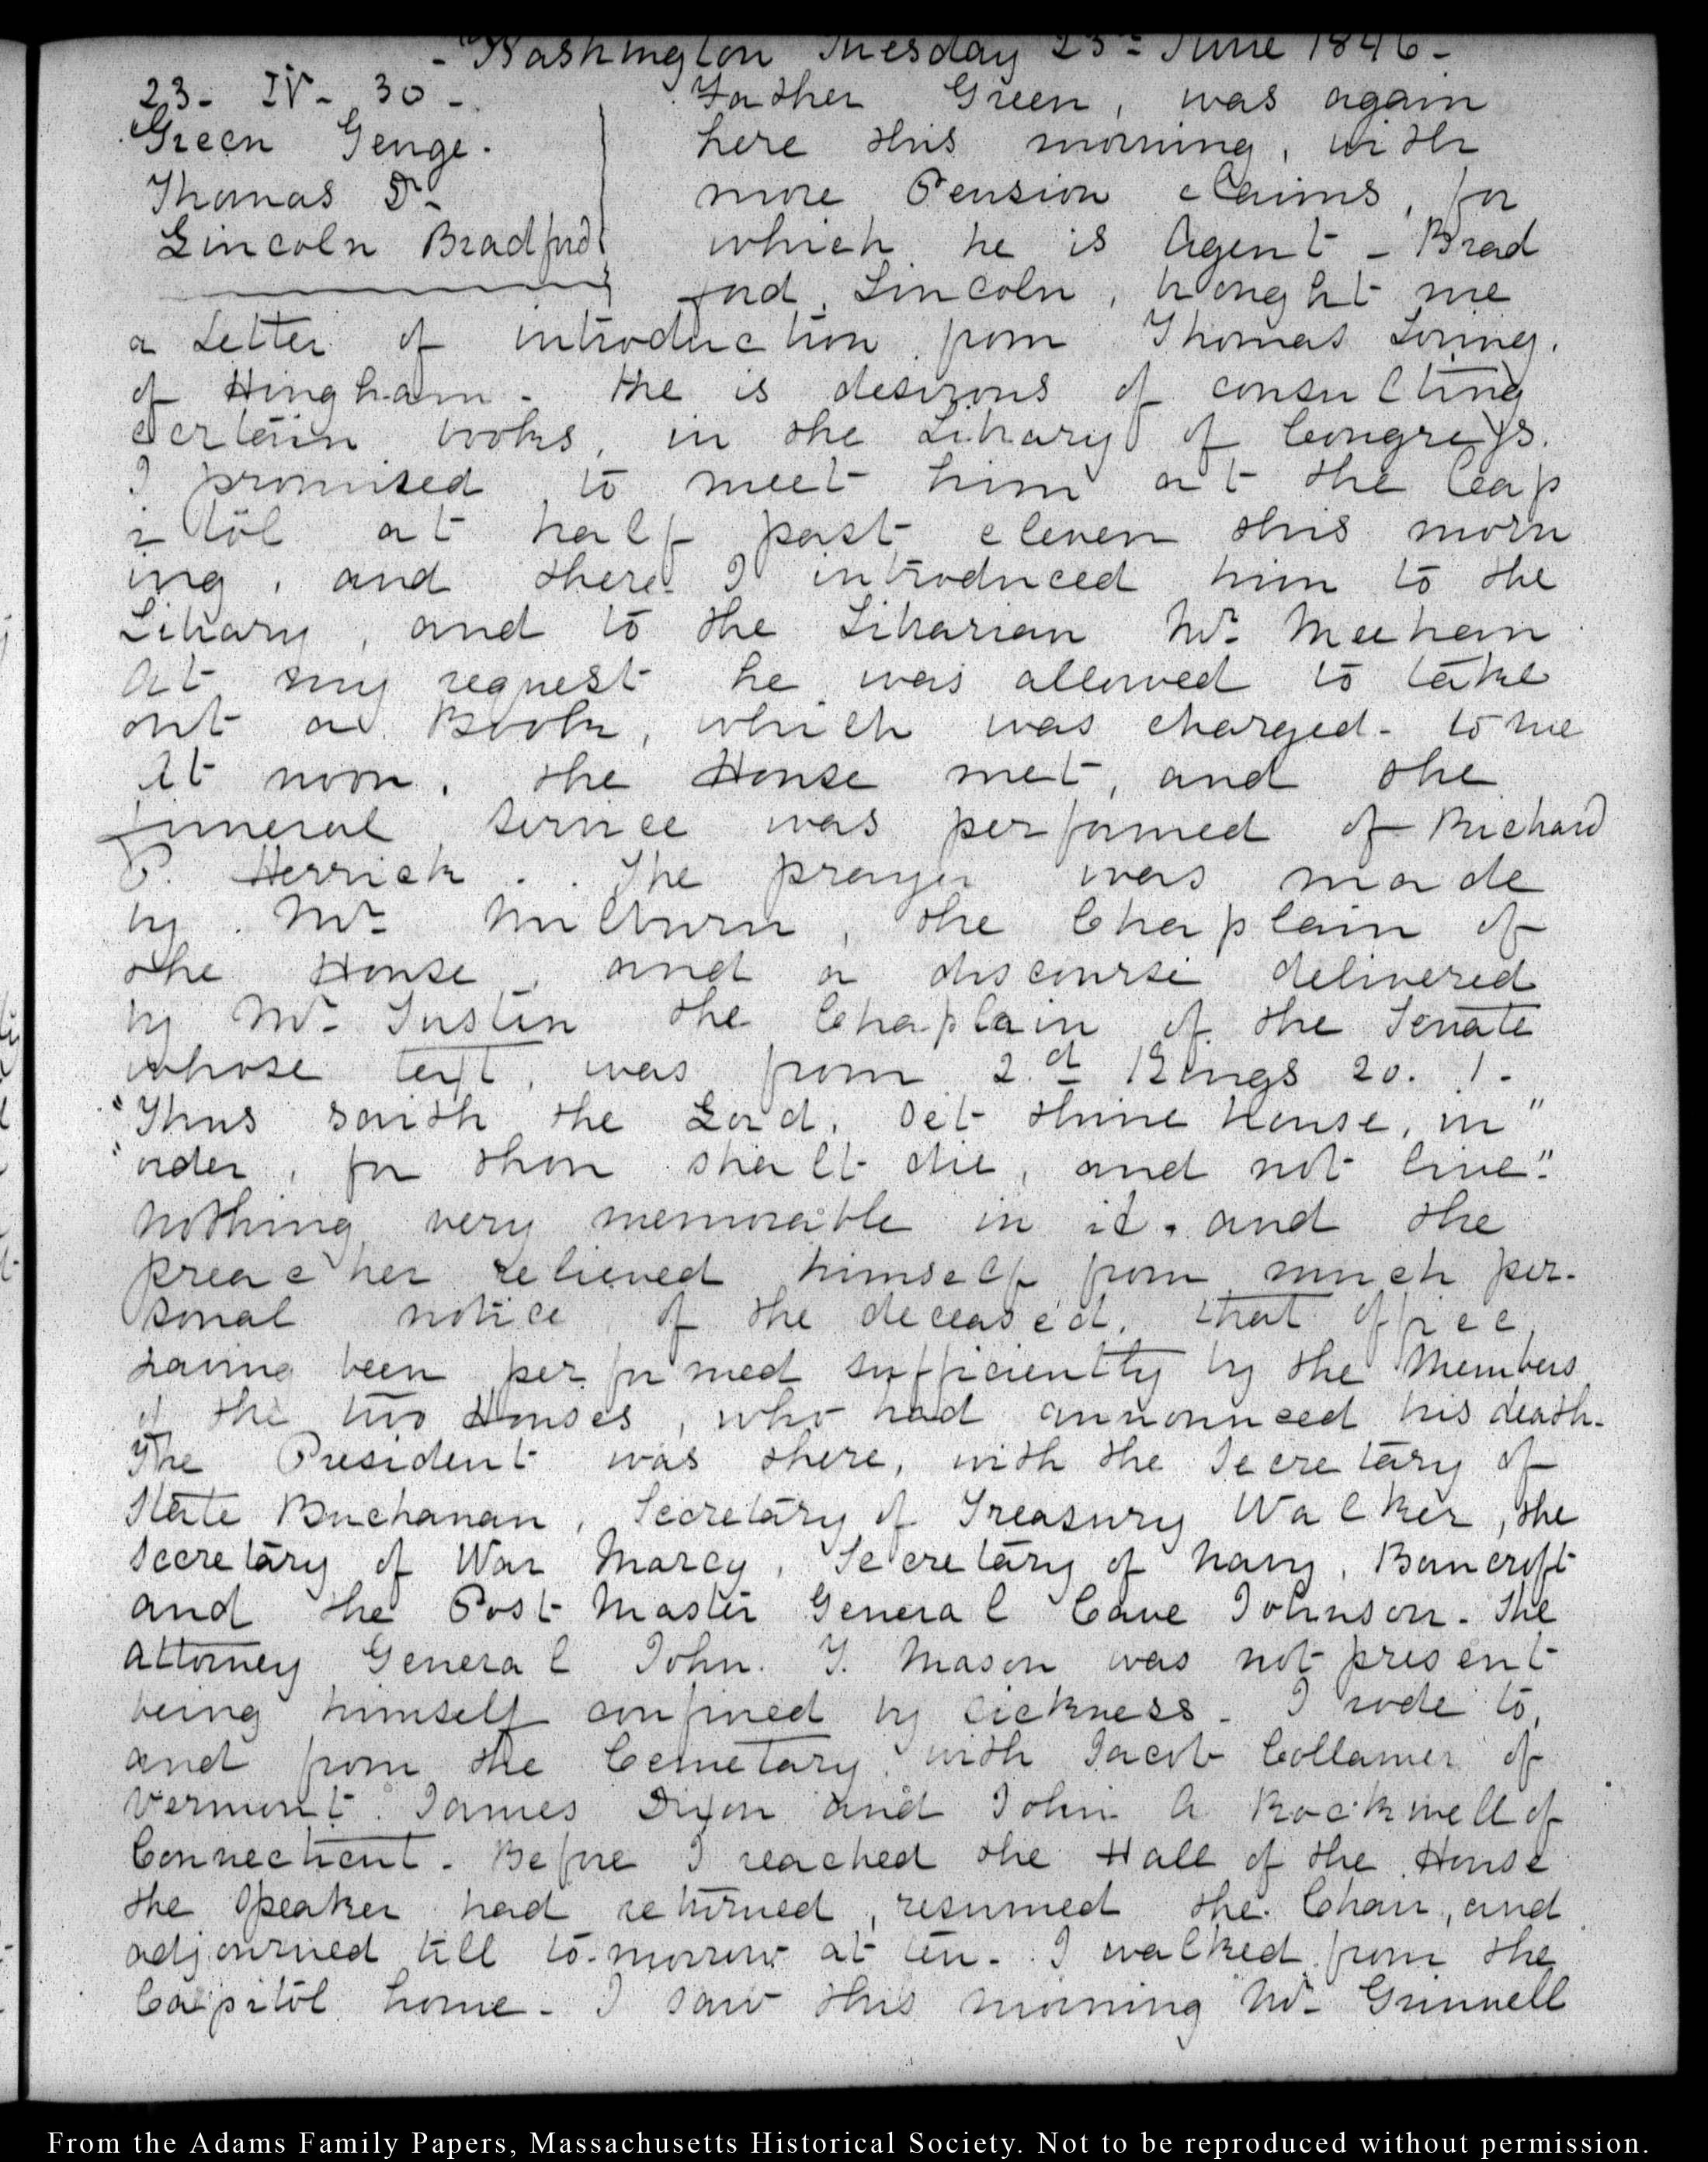 - Washington Tuesday 23d June 1846 -
23 - IV - 30 -
Green George.
Thomas Dr
Lincoln Bradford
Father Green, was again
here this morning, with
more Pension claims, for
which he is Agent - Brad
ford, Lincoln, brought me
a Letter of introduction from Thomas Loring.
of Hingham - He is desirous of consulting
certain books, in the Library of Congress.
I promised to meet him at the Cap
itol at half past eleven this morn
ing, and there I introduced him to the
Library, and to the Librarian Mr Meehan
At my request he was allowed to take
out a Book, which was charged - to me
At noon, the House met, and the
funeral service was performed of Richard
P. Herrick. The prayer was made
by Mr Milburn, the Chaplain of
the House, and a discourse delivered
by Mr Tustin the Chaplain of the Senate
whose text, was from 2d Kings 20. 1.
"Thus saith the Lord, Set thine house, in"
"order, for thou shalt die, and not live."
Nothing very memorable in it. and the
preacher relieved himself from much per-
sonal notice of the deceased, that office
having been performed sufficiently by the Members
of the two Houses, who had announced his death.
The President was there, with the Secretary of
State Buchanan, Secretary of Treasury Walker, the
Secretary of War Marcy, Secretary of Navy, Bancroft
and the Post Master General Cave Johnson. The
Attorney General John. Y. Mason was not present
being himself confined by sickness - I rode to,
and from the Cemetary, with Jacob Collamer of
Vermont. James Dixon and John A Rockwell of
Connecticut. Before I reached the Hall of the House
the Speaker had returned, resumed the Chair, and
adjourned till to-morrow at ten - I walked from the
Capitol home - I saw this morning Mr Grinnell
From the Adams Family Papers, Massachusetts Historical Society. Not to be reproduced without permission.